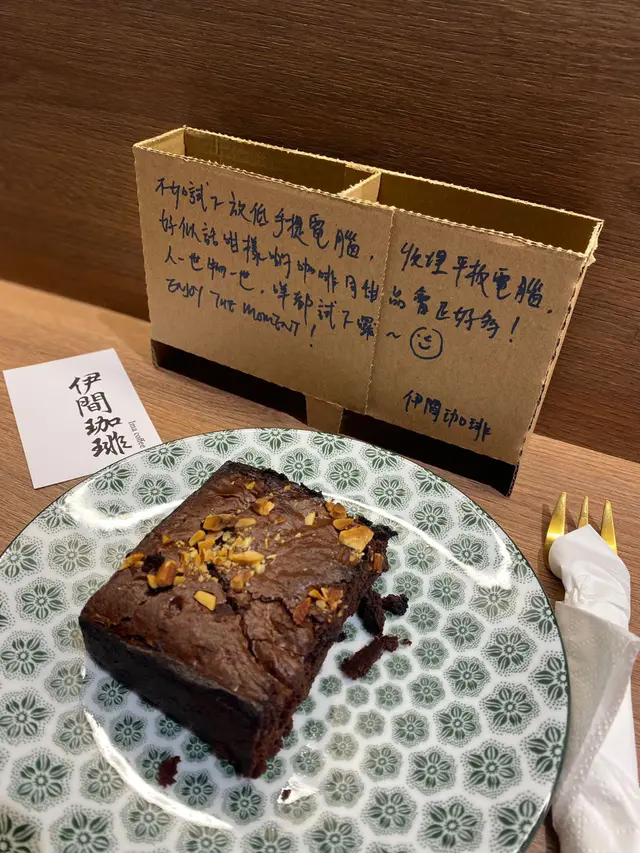 不如試下放低手提電腦，收埋平板電腦，
好似話咁樣嘅咖啡同甜品會正好多！
人一世物一世，咩都試下囉～
ENJOY THE MOMENT!
伊間珈琲
伊間珈琲
1ma coffee